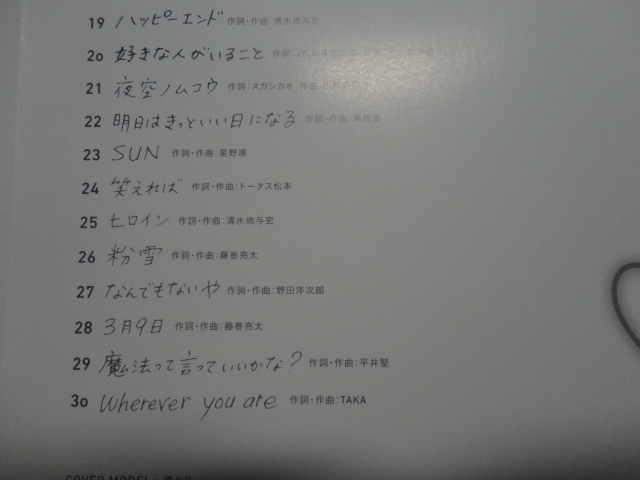 19 ハッピーエンド 作詞・作曲:清水依与吏
20 好きな人がいること 作詞:JY,
21 夜空ノムコウ 作詞:スガシカオ 作曲:
22 明日はきっといい日になる 作詞・作曲:高橋優
23 SUN 作詞・作曲:星野源
24 笑えれば 作詞・作曲:トータス松本
25 ヒロイン 作詞・作曲:清水依与吏
26 粉雪 作詞・作曲:藤巻亮太
27 なんでもないや 作詞・作曲:野田洋次郎
28 3月9日 作詞・作曲:藤巻亮太
29 魔法って言っていいかな? 作詞・作曲:平井堅
30 Wherever you are 作詞・作曲:TAKA
COVER MODEL